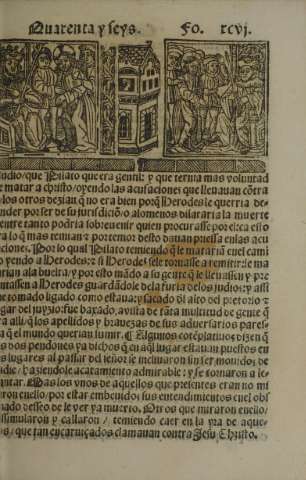 Quarenta y seys. Fo. xcvj.
judio/que Pilato que era gentil: y que ternia mas voluntad
e matar a christo/oyendo las acusaciones que lleuauan cõtra
los otros dezian q̃ no era bien porq̃ Herodes le querria de
ender por ser de su jurisdiciõ/o alomenos dilataria la muerte
entre tanto podria sobreuenir quien procurasse por
lo q̃ mas temian: y por temor desto dauan priessa en las acu
ciones. Por lo qual Pilato temiendo q̃ le matariã enel cami
o yendo a Herodes: z si Herodes sele tornasse a remitir: le ma
arian ala buelta/y por esto mãdo a su gente q̃ le lleuassen y pre
ntassen a Herodes guardãdole dela furia delos judios: y assi
ue tomado ligado como estaua: y sacado dl alto del pretorio z
ugar del juyzio: fue baxado/a vista de tãta multitud de gente q̃
ra alli/ q̃ los apellidos y brauezas de sus aduersarios pares
a q̃ el mundo querian hundir. ¶ Algunos cõtẽplatiuos dizen q̃
os dos pendones ya dichos q̃ en aq̃l lugar estauan puestos en
us lugares al passar del señor le inclinaron sin ser mouidos de
adie/haziendole acatamiento admirable: y se tornaron a le
antar. Mas los vnos de aquellos que presentes eran no mi
aron enello/por estar embeuidos sus entendimientos enel obs
nado desseo de le ver ya muerto. Otros que miraron enello/
issimularon y callaron/ temiendo caer en la yra de aque
os/ que tan encarniçados clamauan contra Jesu Christo.